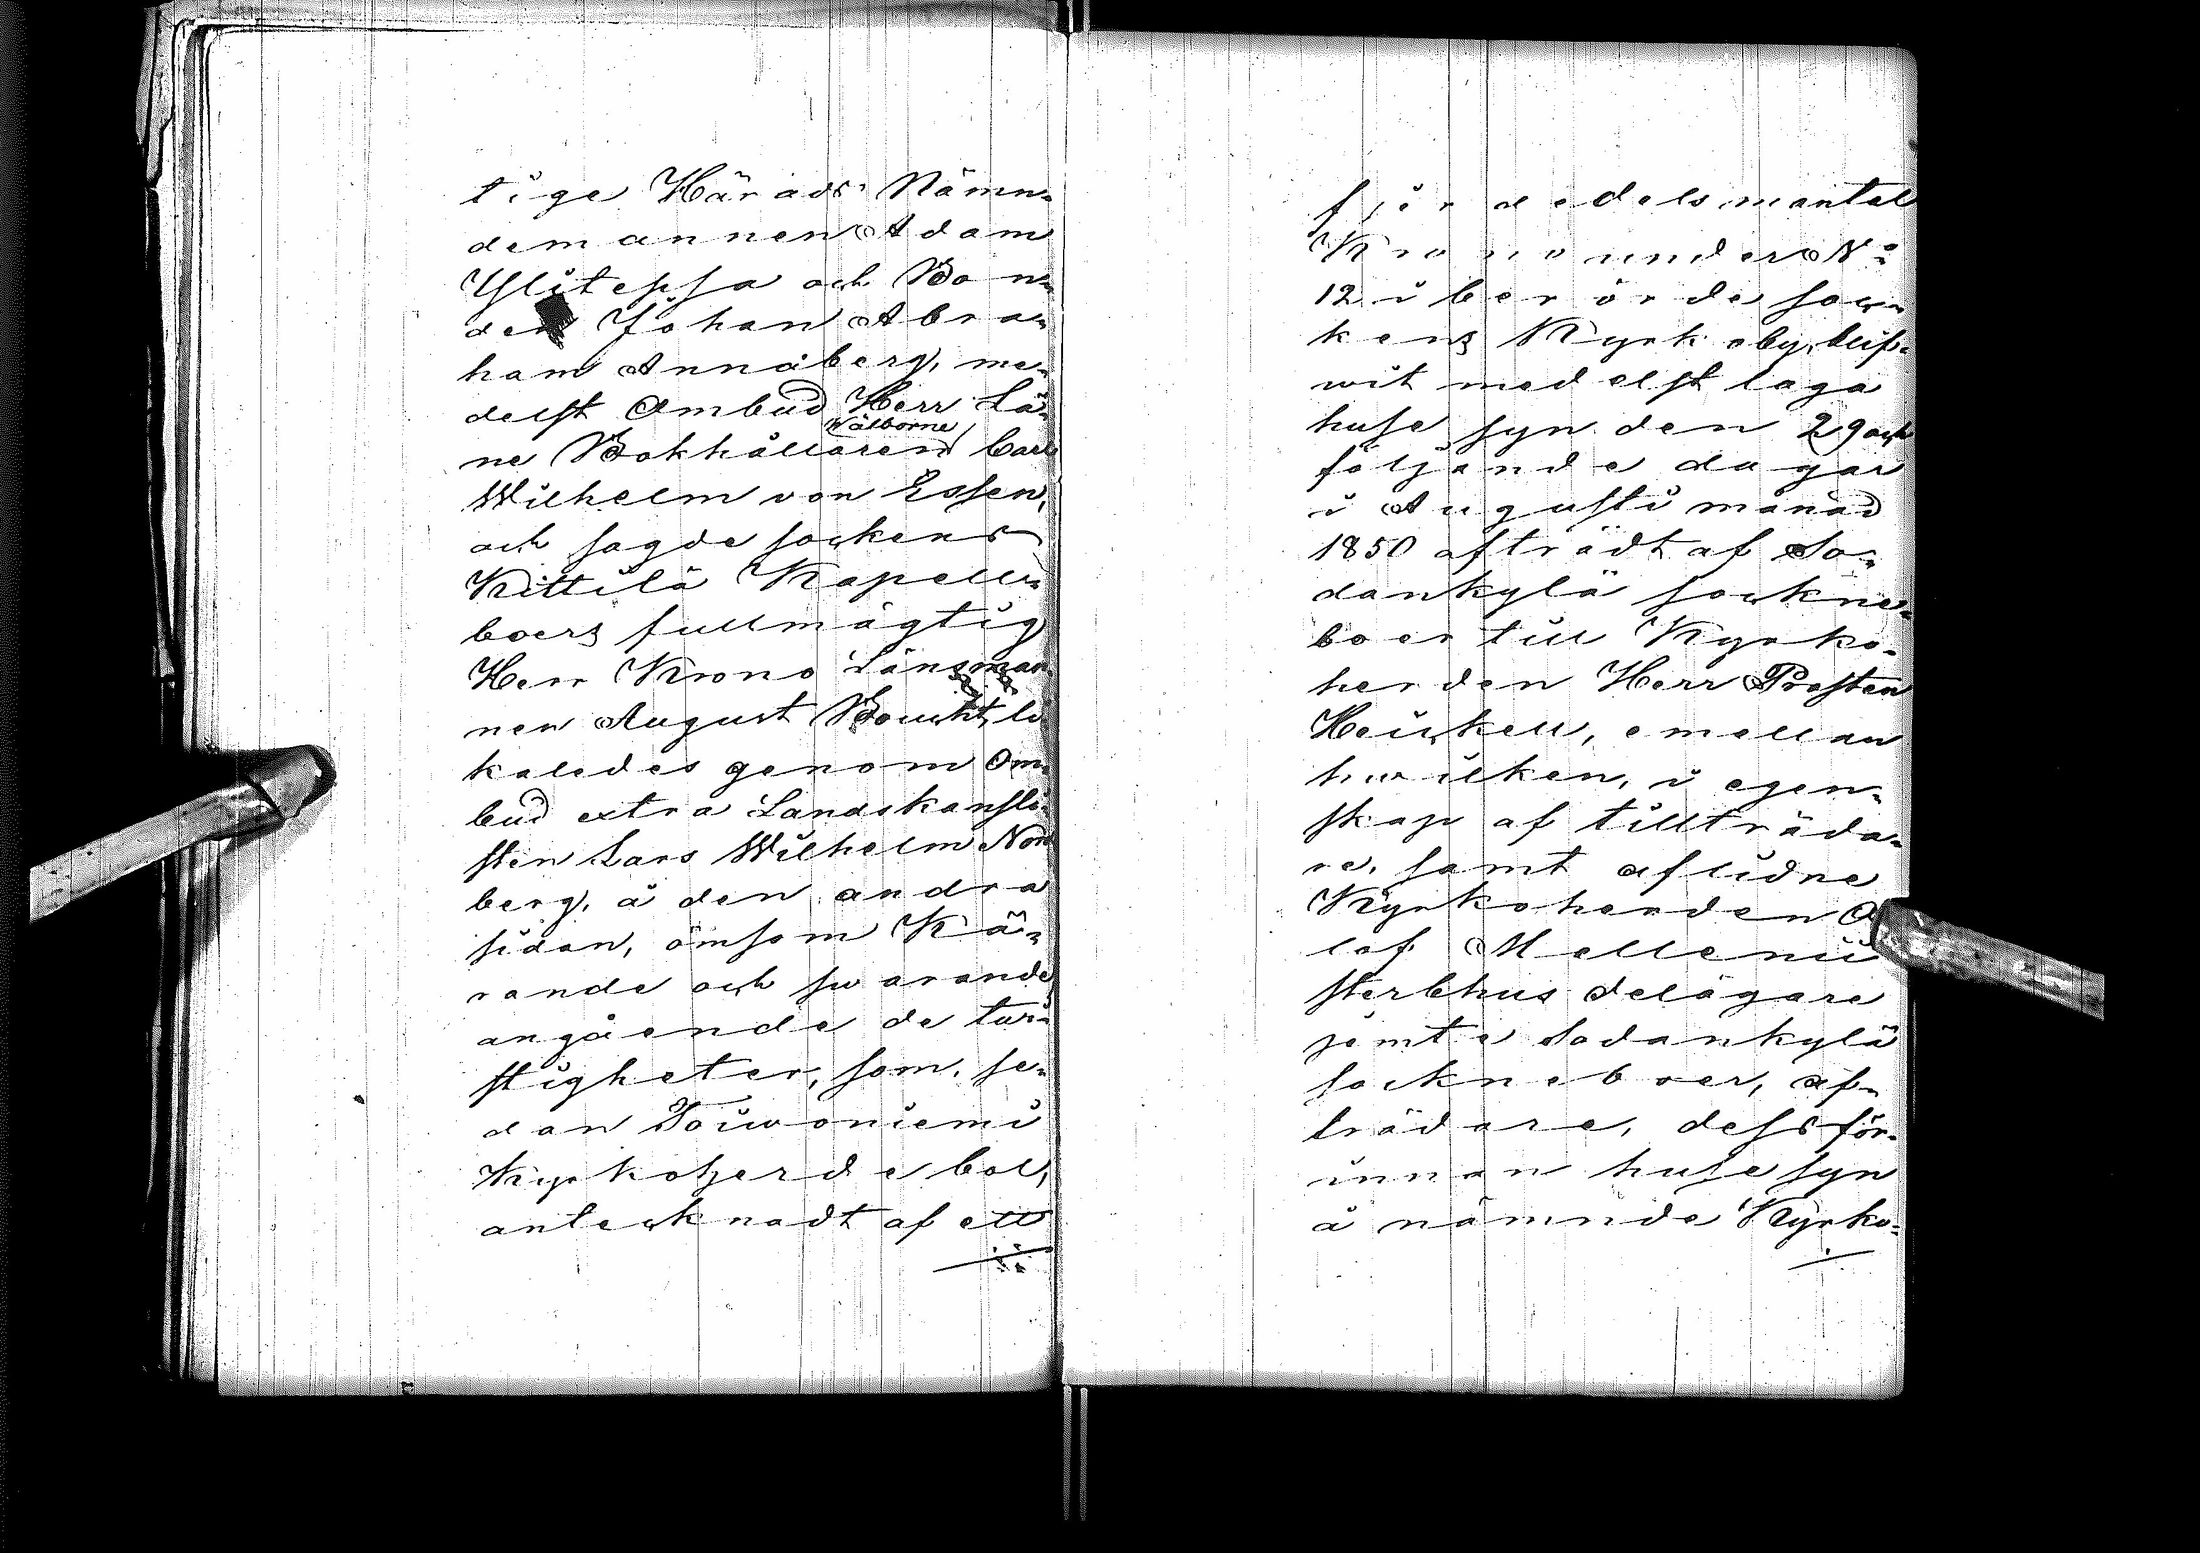 tige Härads Nämn-
demannen Adam
Ylitepsa och Bon-
den Johan Abra-
ham Annaberg, me-
delst Ombud Herr Lä-
Wälborne
ne Bokhållaren Carl
Wilhelm von Essen,
och sagde sockens
Kittilä Kapell-
boers fullmägtig
Herr Krono Länsman-
nen August Boucht, li-
kaledes genom Om-
bud extra Landskansli-
sten Lars Wilhelm Nord
berg, å den andra
sidan, ömsom Kä-
rande och swarande
angående de twi-
stigheter, som, se-
dan Toiwoniemi
Kyrkoherdebol,
antecknadt af ett
fjerdedels mantal
Krono under No
12 i berörde soc-
kens Kyrkoby, blif-
wit medelst laga
huse syn den 29 och
följande dagar
i Augusti månad
1850 afträdt af So-
dankylä sockne-
boer till Kyrko-
herden Herr Prosten
Heickell, emellan
hwilken, i egen-
skap af tillträda-
re, samt aflidne
Kyrkoherden O
lof Mellenii
sterbhus delägare
jemte Sodankylä
sockneboer, af-
trädare, dessför-
innan huse syn
å nämnde Kyrko-